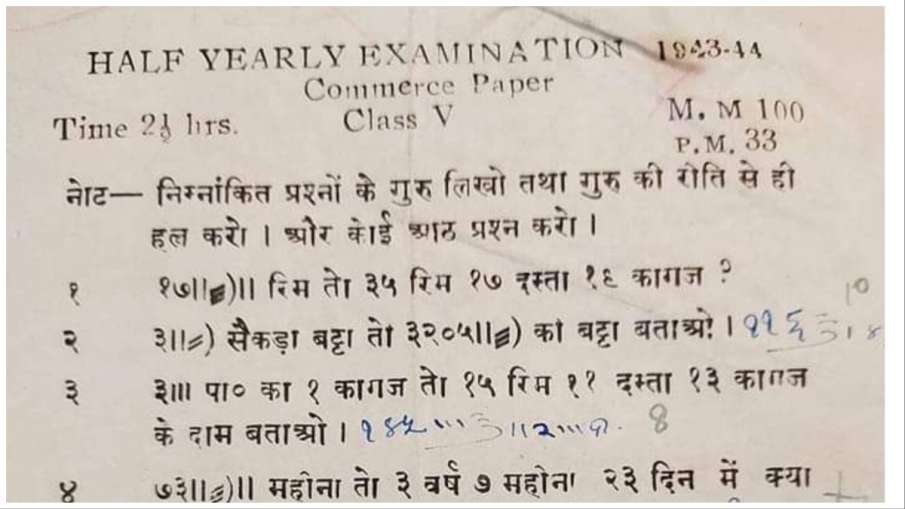 HALF YEARLY EXAMINATION 1943-44
Commerce Paper
Time 2½ hrs. Class V M. M 100
P.M. 33
नोट— निम्नांकित प्रश्नों के गुरु लिखो तथा गुरु की रीति से ही
हल करो । और कोई आठ प्रश्न करो ।
१ १७॥≡)॥ रिम तो ३५ रिम १७ दस्ता १६ कागज ? 10
२ ३॥=) सैकड़ा बट्टा तो ३२०५॥≡) का बट्टा बताओ ।
३ ३॥। पा० का १ कागज तो १५ रिम ११ दस्ता १३ कागज
के दाम बताओ । 8
४ ७३॥≡)॥ महीना तो ३ वर्ष ७ महीना २३ दिन में क्या